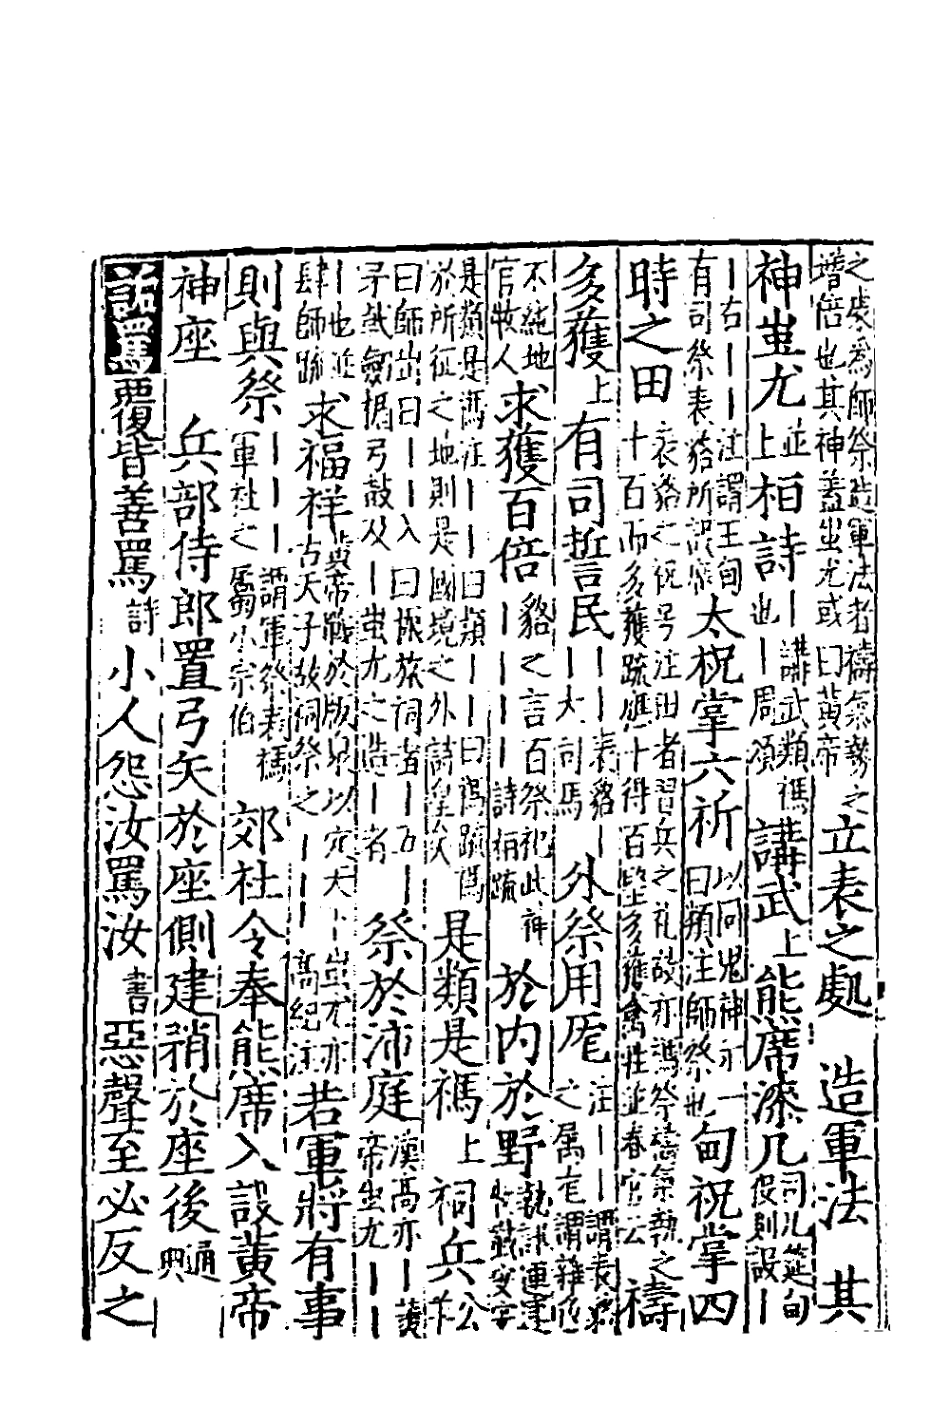 之處為師祭造軍法者禱氣勢之增倍也其神蓋蚩尤或曰黃帝立表之處　造軍法　其
神蚩尤並上栢詩丨講武類禡也丨周頌講武上熊席漆几司几筵甸役則設丨
丨右丨丨注謂王甸有司祭表貉所設席太祝掌六祈以同鬼神示一曰類注師祭也甸祝掌四
時之田表貉之祝号注田者習兵之礼故亦禡祭禱氣勢之十百而多獲疏應十得百望多獲禽牲並春官云禱
多獲上有司誓民丨丨丨表貉丨丨大司馬　外祭用厖注丨丨丨謂表貉之属厖謂雜色
不純地官牧人求獲百倍貉之言百祭祀此神丨丨丨丨詩桓疏於內於野執訊連連
是類是禡注丨丨丨曰類丨丨曰禡疏禡於所征之地則是國境之外詩皇矣　是類是禡上祠兵公羊
曰師出曰丨丨入曰振旅祠者丨五丨矛戟劔楯弓鼓及丨蚩尤之造丨者　祭於沛庭漢高亦丨黃帝蚩尤丨丨
丨也並肆師疏求福祥黃帝戰於版泉以定天丨蚩尤亦古天子故祠祭之丨丨丨高紀注若軍將有事
則與祭丨丨丨謂軍祭表禡軍社之属小宗伯　郊社令奉熊席入設黃帝
神座　兵部侍郎置弓矢於座側建矟於座後通典
詬罵覆背善罵詩小人怨汝罵汝書惡聲至必反之